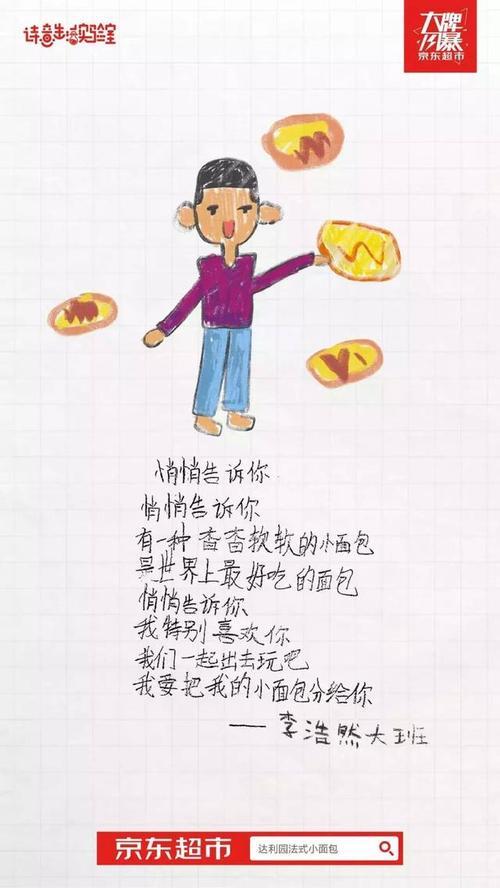 大牌
风暴
京东超市
悄悄告诉你
悄悄告诉你
有一种香香软软的小面包
是世界上最好吃的面包
悄悄告诉你
我特别喜欢你
我们一起出去玩吧
我要把我的小面包分给你
——李浩然大班
京东超市
达利园法式小面包